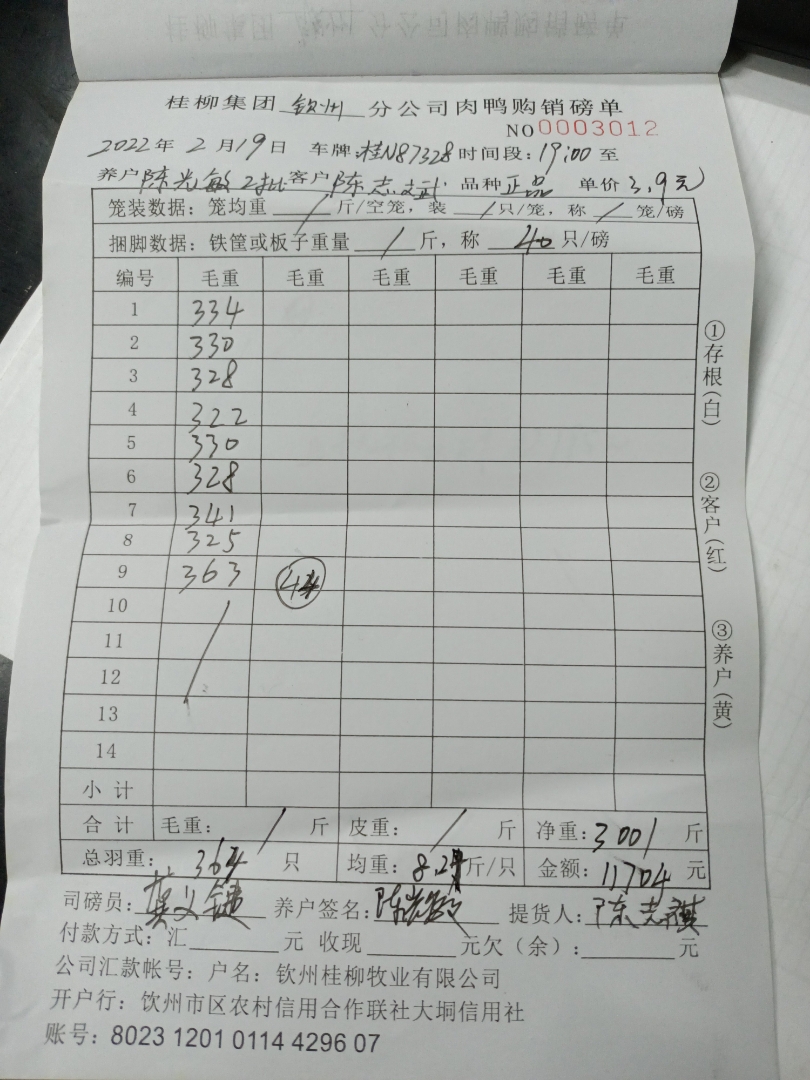 桂柳集团 钦州 分公司肉鸭购销磅单
NO 0003012
2022年 2月19日 车牌:桂N87328 时间段:19:00至
养户 陈光敏2批 客户 陈志斌 品种 正品 单价 3.9元
笼装数据:笼均重 / 斤/空笼,装 / 只/笼,称 / 笼/磅
捆脚数据:铁筐或板子重量 / 斤,称 40 只/磅
编号 毛重 毛重 毛重 毛重 毛重 毛重
1 334
2 330
3 328
4 322
5 330
6 328
7 341
8 325
9 363 44
10
11
12
13
14
小计
合计 毛重: / 斤 皮重: / 斤 净重:3001 斤
总羽重: 364 只 均重: 8.24 斤/只 金额:11704 元
司磅员: 养户签名:陈光敏 提货人:陈志
付款方式:汇 元 收现 元欠(余): 元
公司汇款帐号:户名:钦州桂柳牧业有限公司
开户行:钦州市区农村信用合作联社大垌信用社
账号:8023 1201 0114 4296 07
①存根(白)
②客户(红)
③养户(黄)